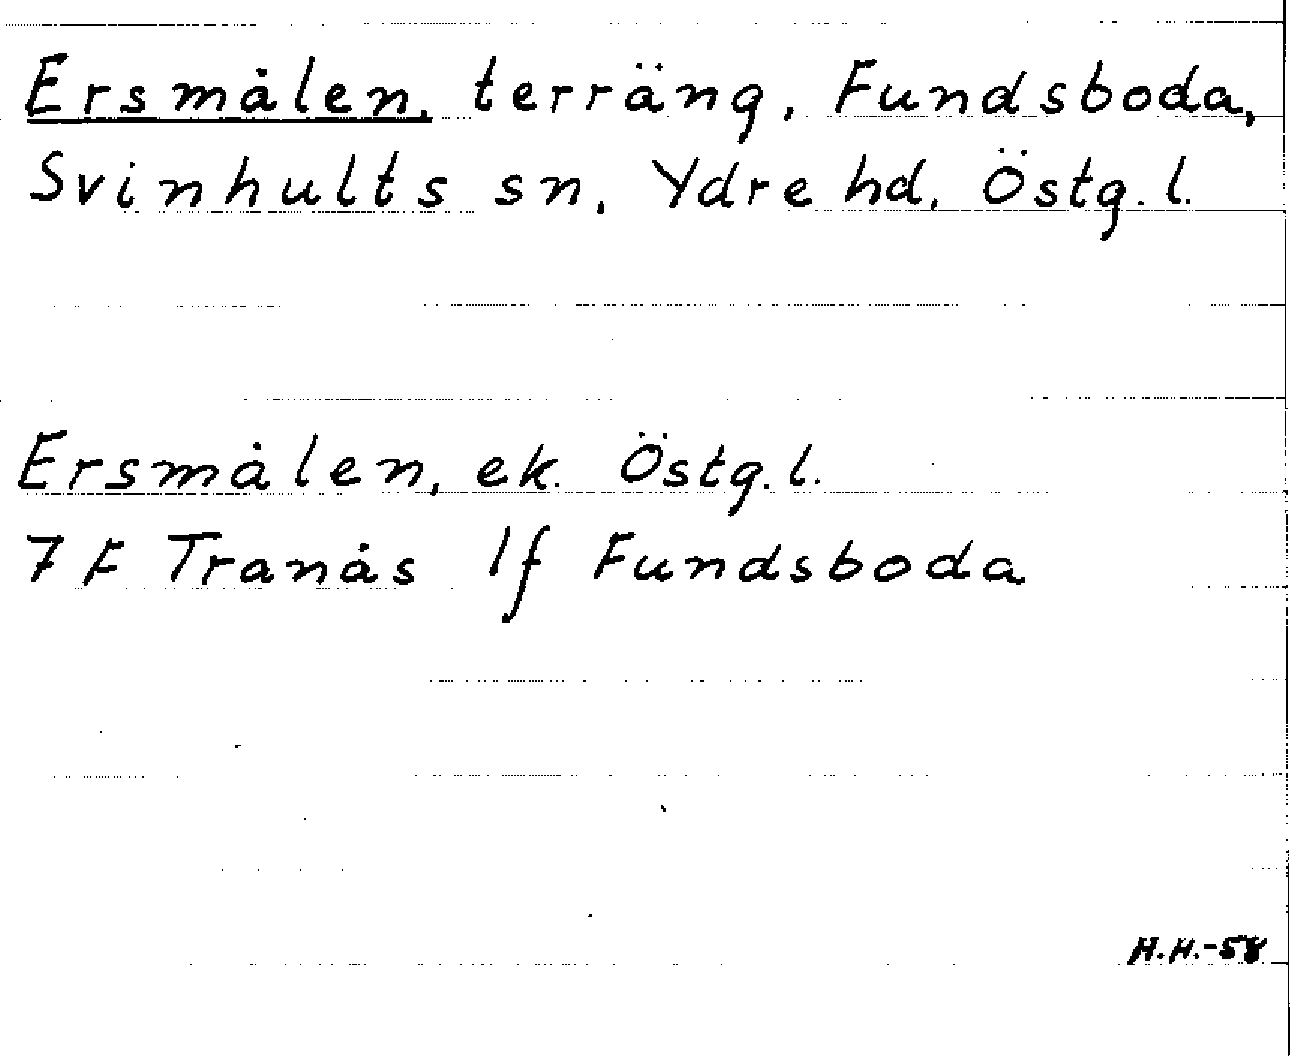 Ersmålen, terräng, Fundsboda,
Svinhults sn, Ydre hd, Östg. l.
Ersmålen, ek. Östg. l.
7 F Tranås 1f Fundsboda
H.H.-58